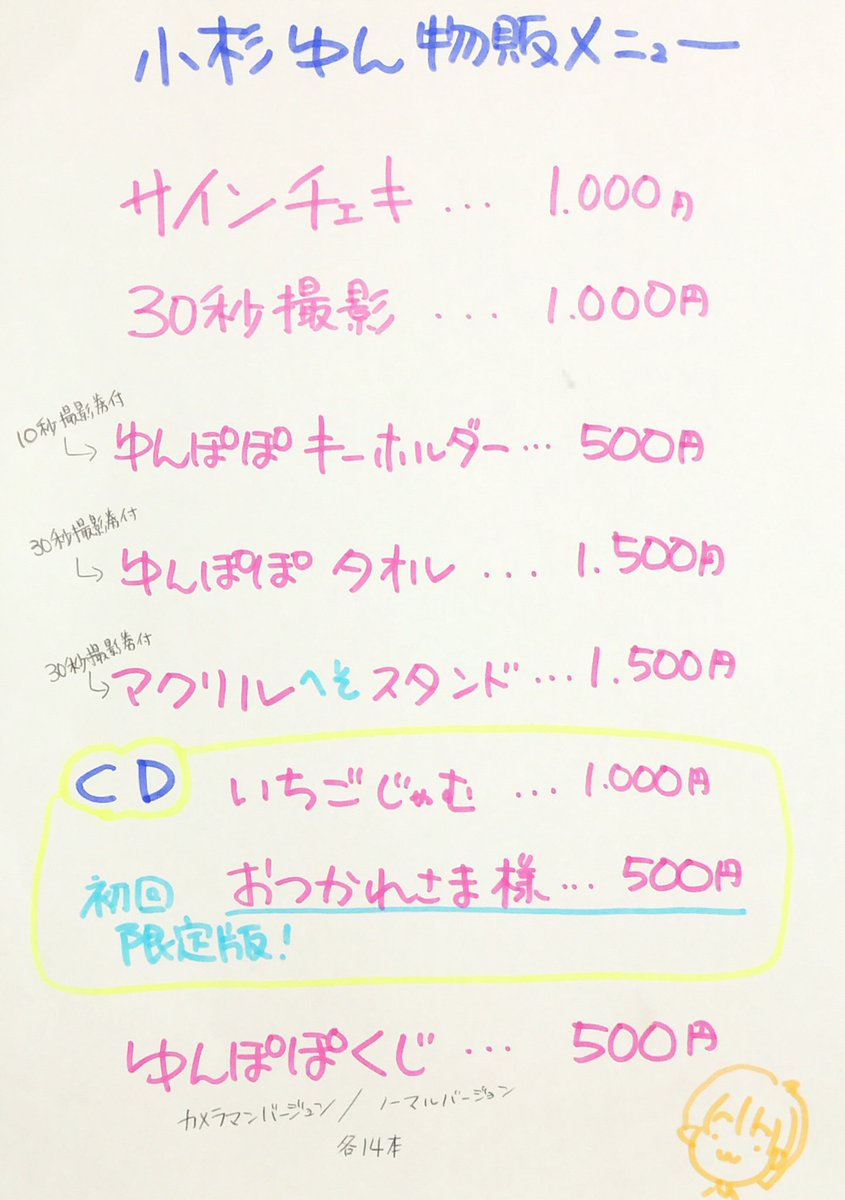 小杉ゆん物販メニュー
サインチェキ ... 1.000円
30秒撮影 ... 1.000円
10秒撮影券付
ゆんぽぽキーホルダー... 500円
30秒撮影券付
ゆんぽぽタオル ... 1.500円
30秒撮影券付
マクリルへそスタンド ... 1.500円
CD いちごじゃむ ... 1.000円
おつかれさま様... 500円
初回
限定版!
ゆんぽぽくじ ... 500円
カメラマンバージョン / ノーマルバージョン
各14本